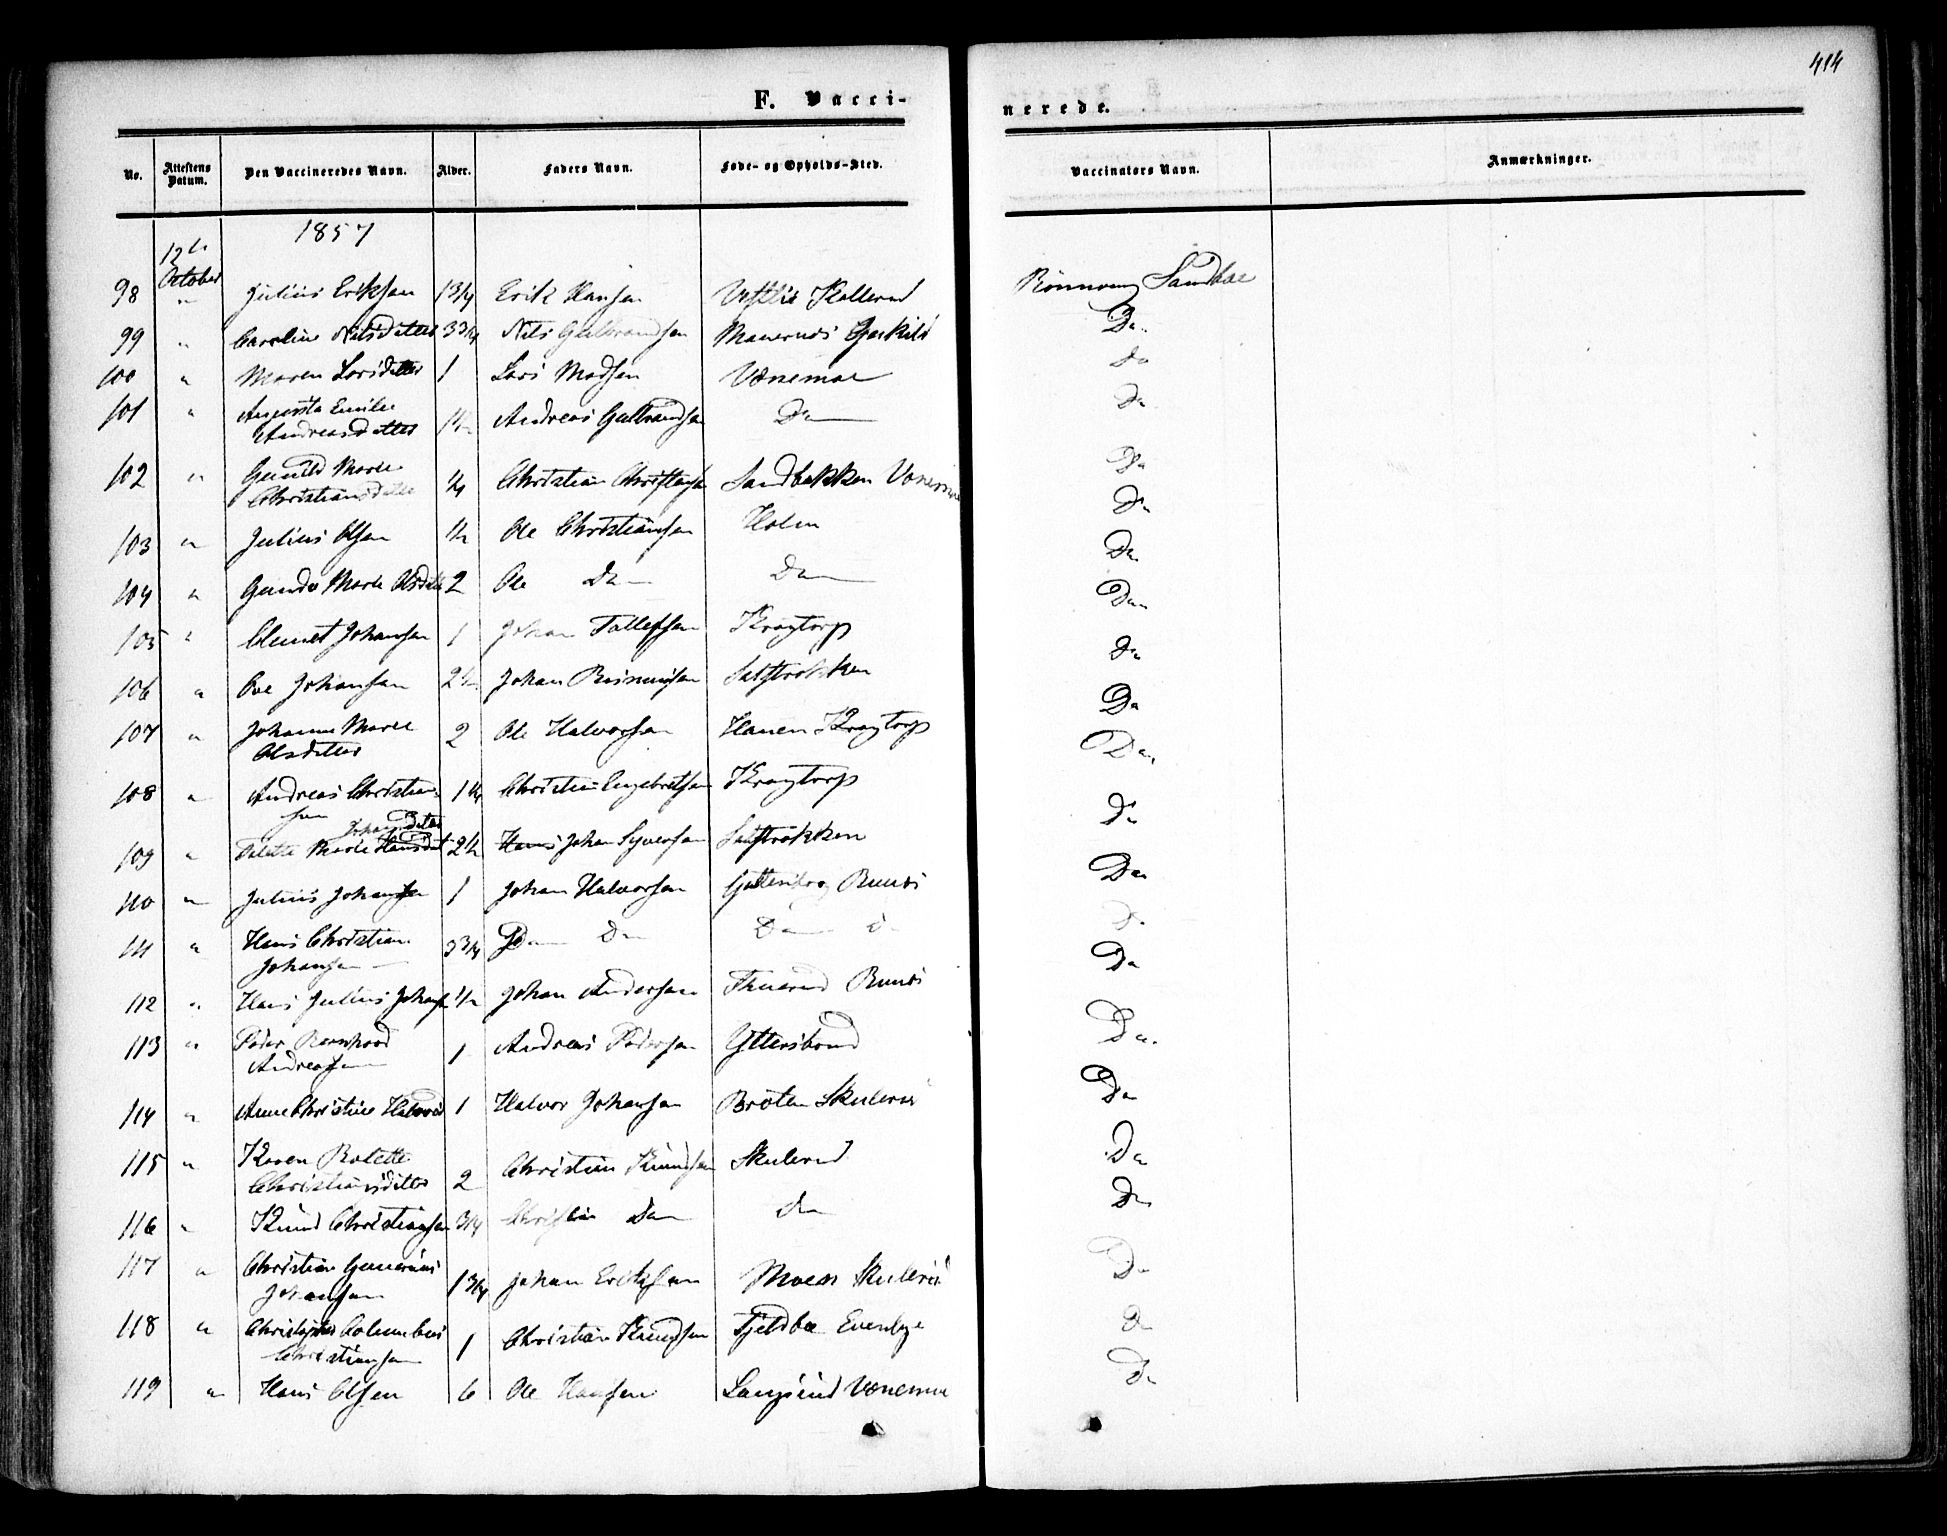 414
F. Vacci-
nerede.
No.
Attestens Datum.
Den Vaccineredes Navn.
Alder.
Faders Navn.
Føde- og Opholds-Sted.
Vaccinators Navn.
Anmærkninger.
1857
12te October
98 " Julius Eriksen 1 3/4 Erik Hansen Vestlie Kollerud Sandbæk
99 " Caroline Nilsdatter 3 3/4 Nils Gulbrandsen Da
100 " Maren Larsdatter 1 Lars Madsen Vonemoe do
101 " Augusta Emilie
Andreasdatter 1 1/2 Andreas Gulbrandsen Do Do
102 " Gunild Marie
Christiansdatter 1/4 Christian Christiansen Sandbekken Vonemoe Do
103 " Julius Olsen 1/2 Ole Christiansen Holm Do
104 " Marie Olsdatter 2 Ole Do Do Do
105 " Clemet Johansen 1 Johan Tollefsen Kragtorp Do
106 " Ole Johansen 2 1/2 Johan Do
107 " Johanne Marie
Olsdatter 2 Ole Halvorsen Hauen Kragtorp Da
108 " Andreas Christian-
sen 1 1/4 Christian Engebretsen Kragtorp Da
Johansdatter
109 " Marie Hansdat 2 1/2 Hans Johan Syversen Do
110 " Julius Johansen 1 Johan Halvorsen Da
111 " Hans Christian
Johansen 3 3/4 Do Do Do do Do
112 " Hans Julius Johans 1/2 Johan Andersen Da
113 " Peder Bernhard
Andreasen 1 Andreas Pedersen Da
114 " Anne Christine Halvors 1 Halvor Johansen Bröten Skulerud Da
115 " Karen
Christiansdatter 2 Christian Knudsen Skulerud Da
116 " Knud Christiansen 3/4 Christian Do do Do
117 " Christian
Johansen 1 3/4 Johan Eriksen Moen Skulerud Do
118 " Christopher Columbus
Christiansen 1 Christian Knudsen Do
119 " Hans Olsen 6 Ole Hansen Vonemoe Do